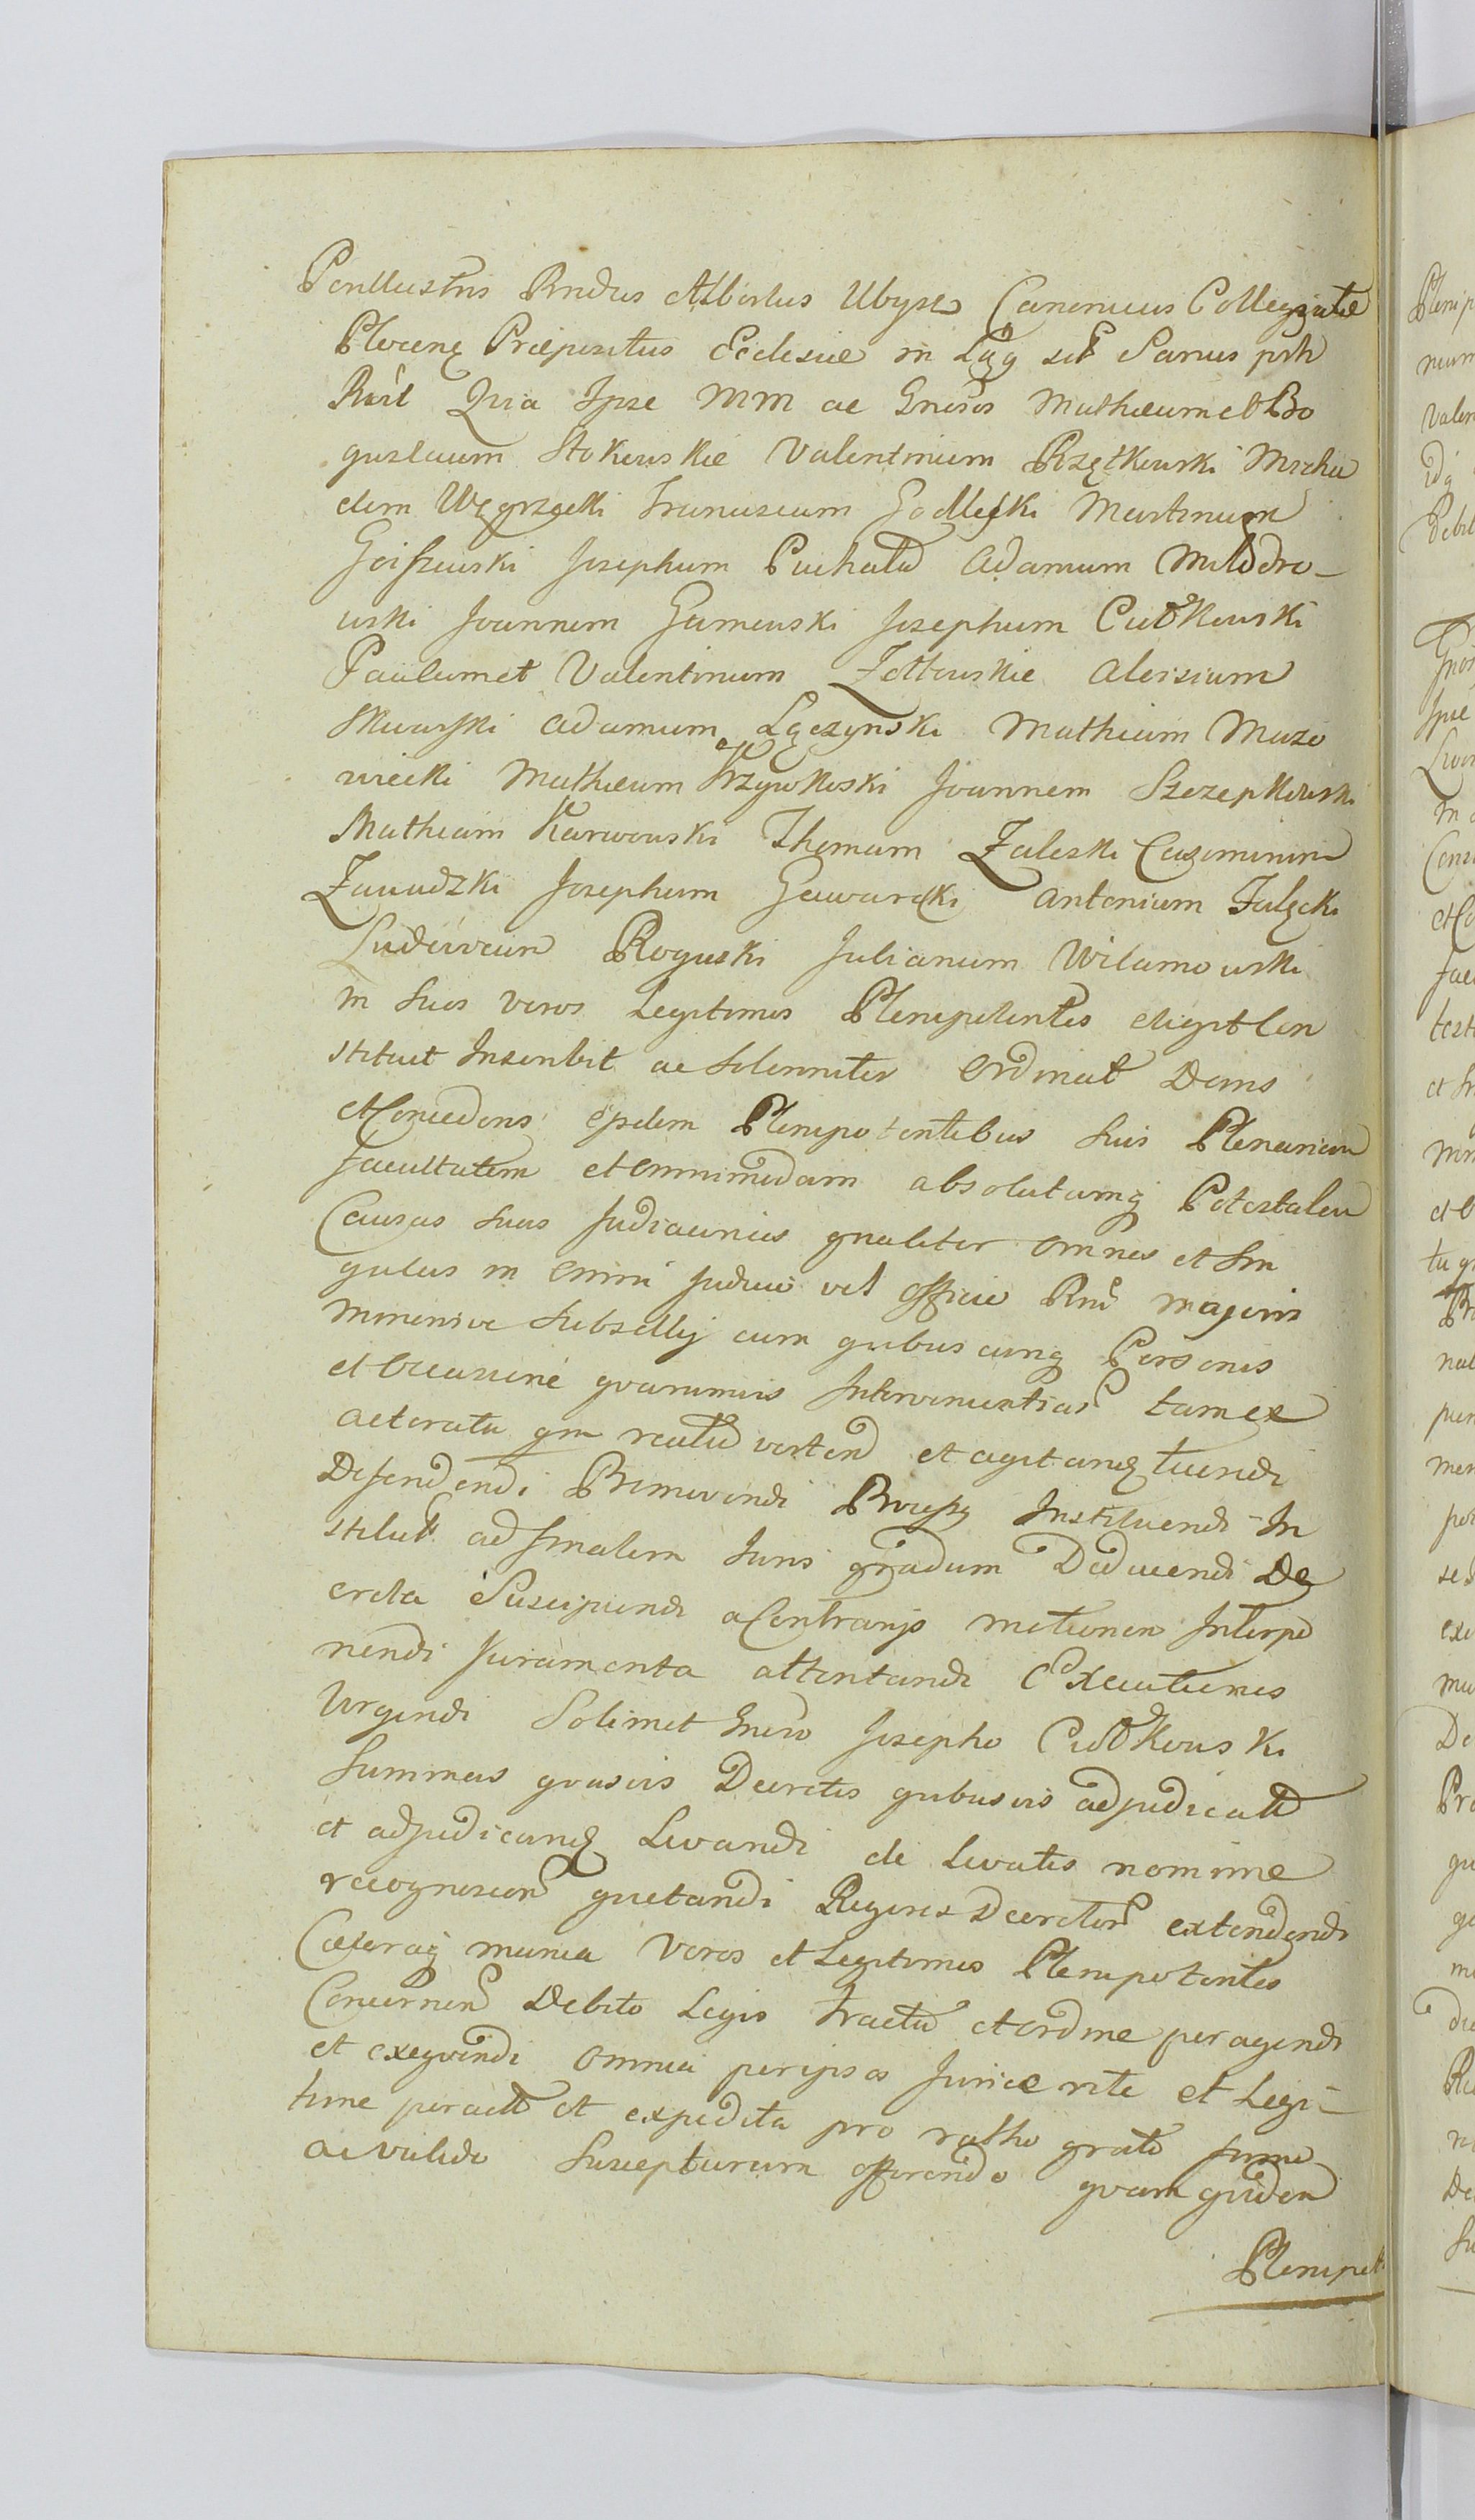 Perillustris Rndus Albertus Ubysz Canonicus Collegiatæ
Plocenę Præpositus Ecclesiæ in Ląg scł Sanus prh
Rńt Qvia Ipse MM ac Gnisos Mathæum et Bo
guslaum Stokowskie Valentinum Rzętkowski Micha
elem Węgrzecki Franciscum Godlewski Martinum
Goiszewski Josephum Puchała Adamum Miłodro-
wski Joannem Gumowski Josephum Cudkowski
Paulum et Valentinum Zołtowskie Aloisium
Skwarski Adamum Łączynski Mathiam Mazo
wiecki Mathæum Krzywkoski Joannem Szczepkowski
Mathiam Karwowski Thomam Zaleski Casimirum
Zawadzki Josephum Gawarecki Antonium Załęcki
Ludovicum Roguski Julianum Wilamowski
in Suos Veros Legitimos Plenipotentes eligit Con
stituit Inscribit ac Solenniter Ordinat Dans
et Concedens ejsdem Plenipotentibus Suis Plenariam
facultatem et omnimodam absolutamq Potestatem
Causas Suas Judiciarias gnaliter omnes et Sin
gulas in omni Judicio vel Officio Rni majoris
minorisve Subsellij cum qvibuscunq Personis
et Occasione qvarumvis Intervenientiar tam ex
actoratu qm reatu verten et agitanq tuendi
Defendendi Promovendi Processy Instituendi In
stitut ad finalem Juris gradum Deducendi De
creta Suscipiendi a Contrarijs motionem Interpo
nendi Juramenta attentandi Executiones
Urgendi Soli met Gneso Josepho Cudkowski
Summas qvasvis Decretis qvibusvis adjudicatt
et adjudicanq Levandi de levatis nomine
recognoscen qvietandi Rigores Decretor extendendi
Cæteraq munia Veros et Legitimos Plenipotentes
Concernen Debito Legis Tractu et ordine peragendi
et exeqvendi omnia per ipsos Juricæ rite et Legi-
time peractt et expedita pro ratho grato firmo
ac valido Suscepturum offerendo qvam qvidem
Plenipot